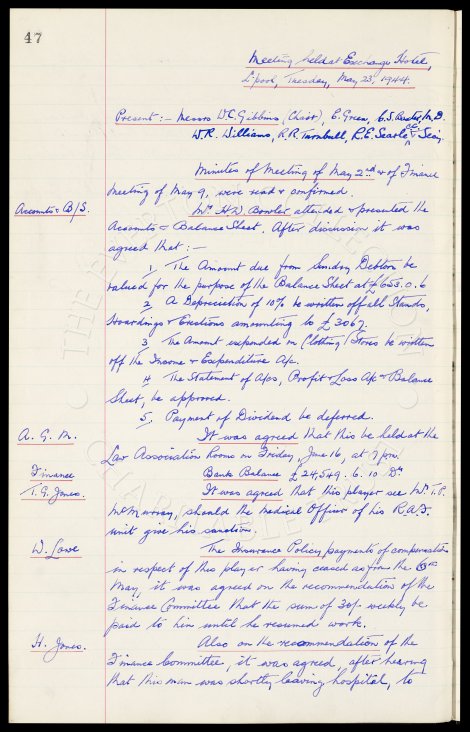 47
Meeting held at Exchange Hotel,
L'pool, Tuesday, May 23, 1944.
Present :- Messrs W.C. Gibbins (Chair), E. Green, C.S. Baxter, M.D.
W.R. Williams, R.R. Turnbull, R.E. Searle & Secy.
Minutes of Meeting of May 2nd & of Finance
Meeting of May 9, were read & confirmed.
Accounts & B/S.
Mr. H.W. Bowler attended & presented the
Accounts & Balance Sheet. After discussion it was
agreed that :-
1, The Amount due from Sundry Debtors be
valued for the purpose of the Balance Sheet at £653.0.6
2, A Depreciation of 10% be written off all Stands,
Hoardings & Erections amounting to £3067.
3, The Amount expended on Clothing & Stores be written
off the Income & Expenditure A/c.
4, The Statement of A/cs, Profit & Loss A/c & Balance
Sheet, be approved.
5, Payment of Dividend be deferred.
A. G. M.
It was agreed that this be held at the
Law Association Rooms on Friday, June 16, at 7 pm.
Finance
Bank Balance £24,549. 6. 10 Dr
T.G. Jones.
It was agreed that this player see Mr. T.P.
McMurray, should the Medical Officer of his R.A.F.
unit give his sanction.
W. Lowe
The Insurance Policy payments of compensation
in respect of this player having ceased as from the
May, it was agreed on the recommendation of the
Finance Committee that the sum of 30/- weekly be
paid to him until he resumed work.
H. Jones.
Also on the recommendation of the
Finance Committee, it was agreed, after hearing
that this man was shortly leaving hospital, to